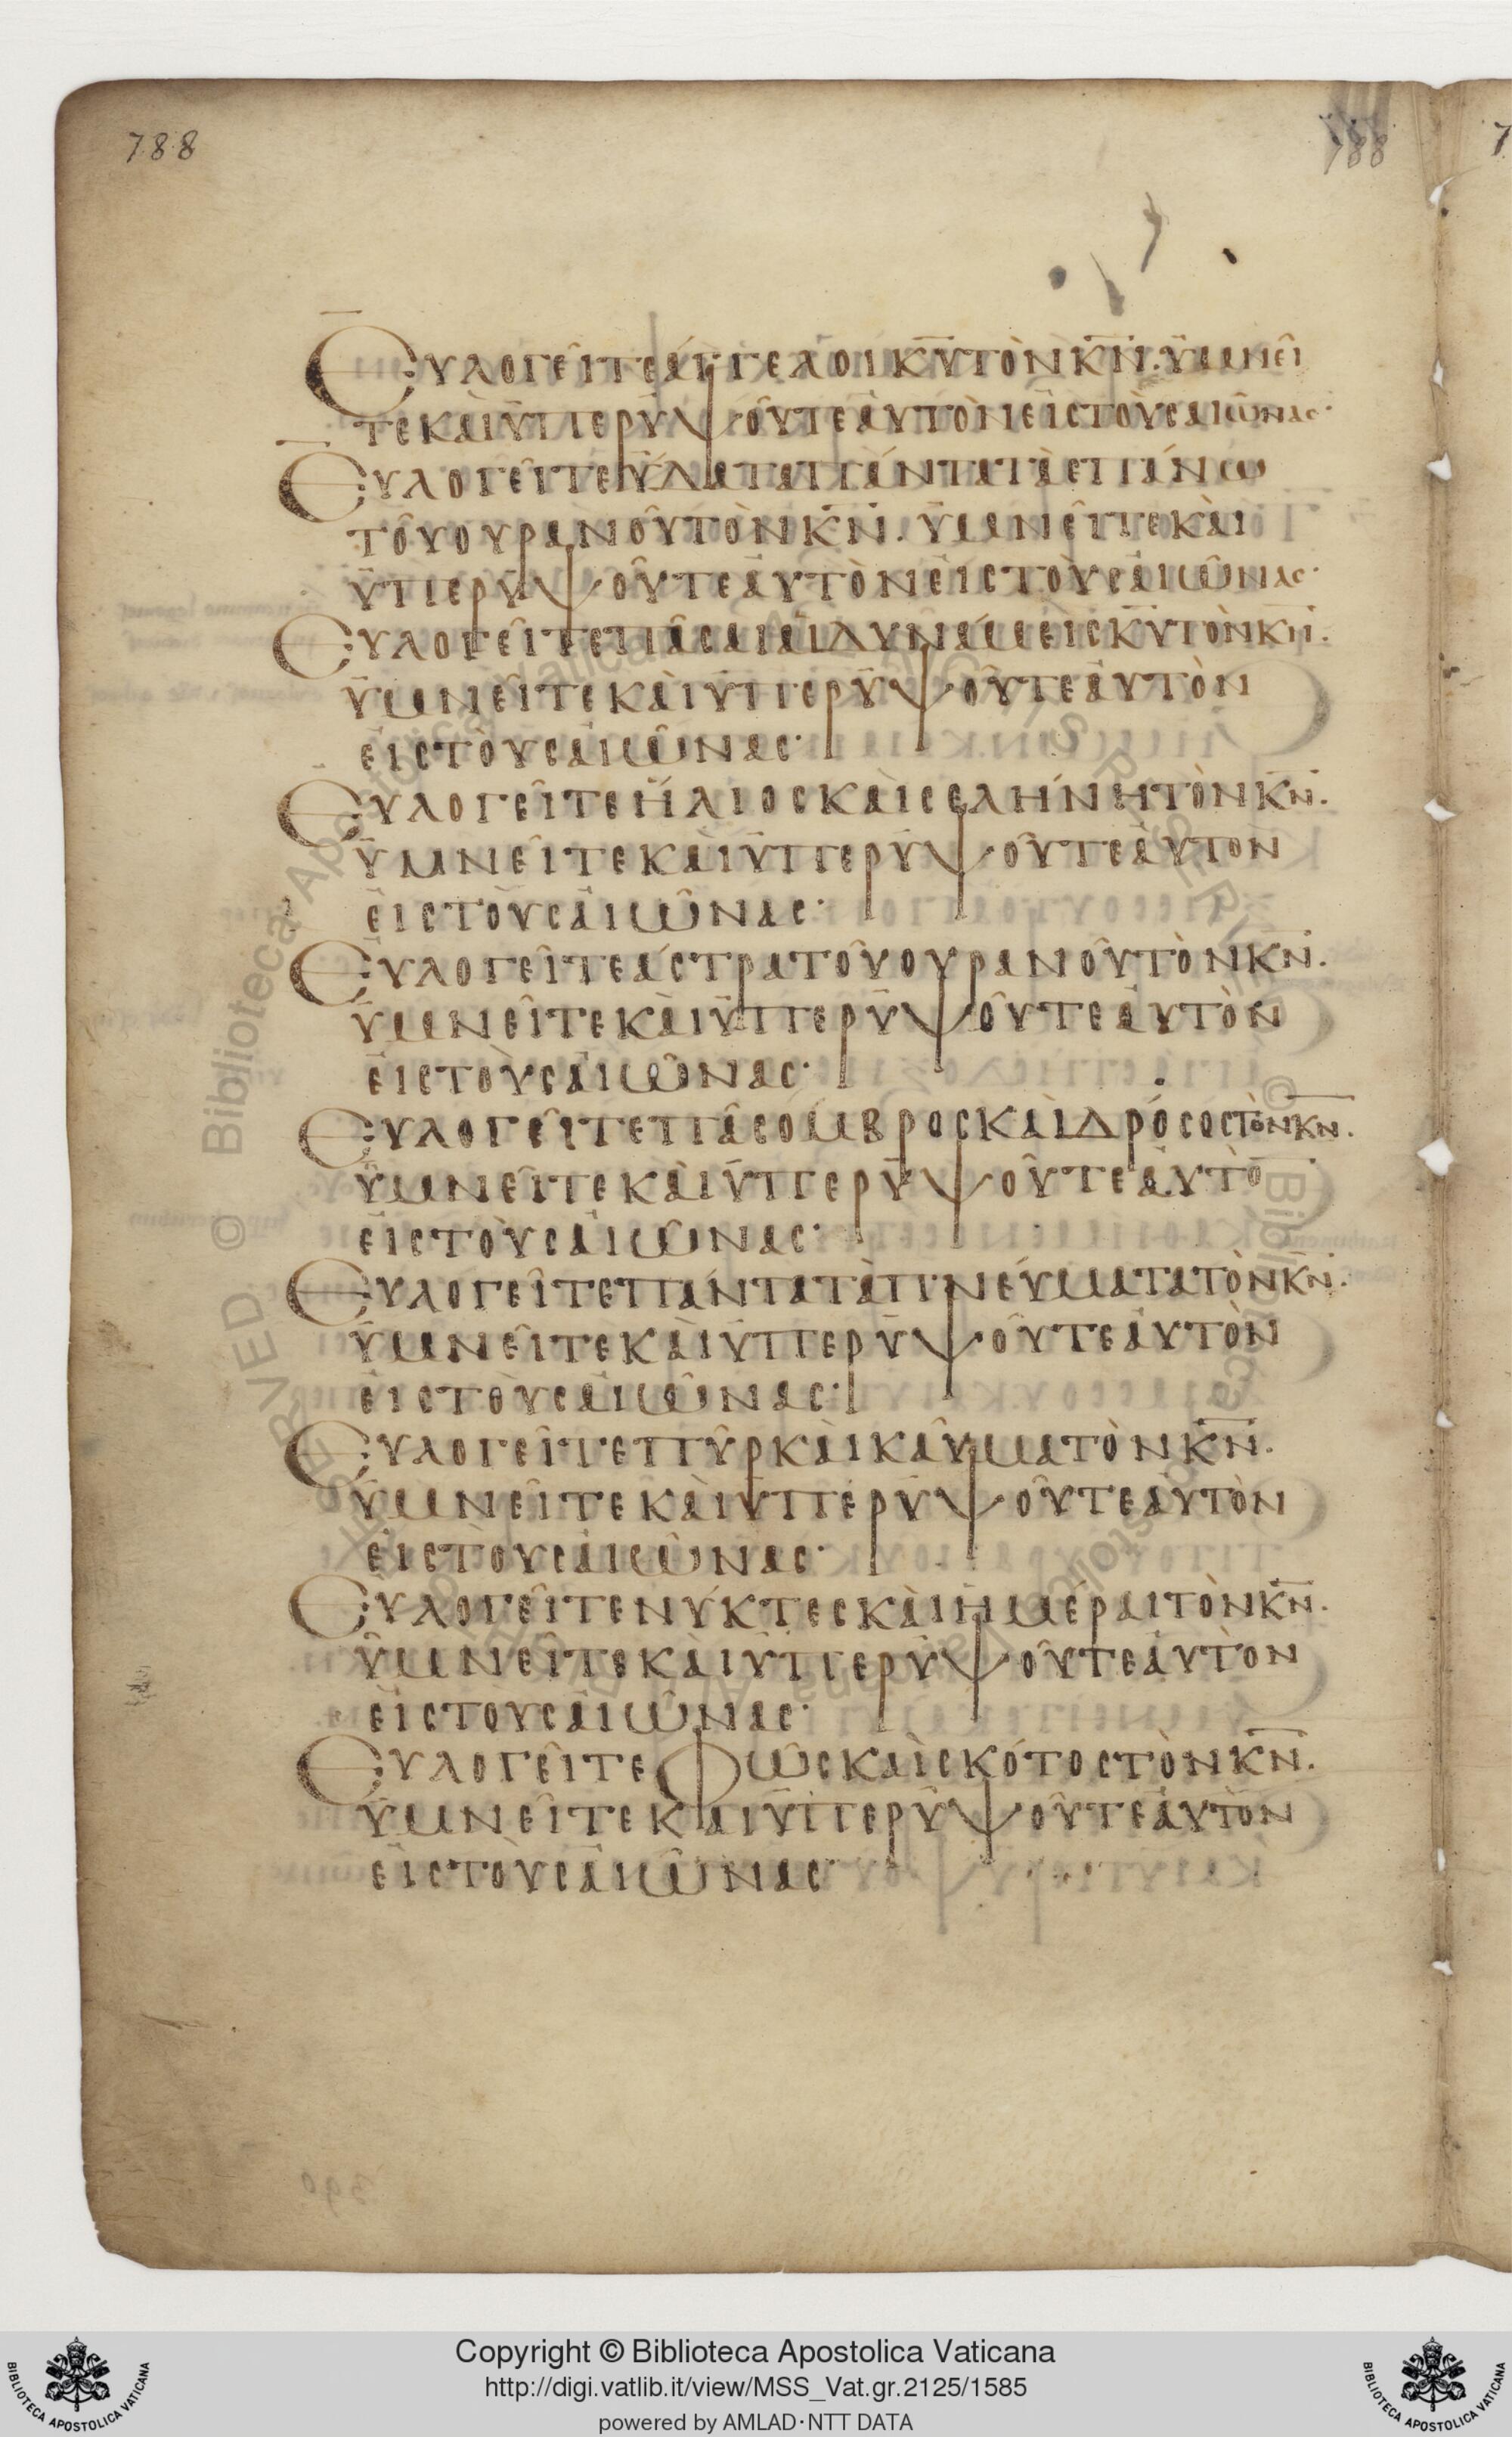 788
788
ΕΥΛΟΓΕῖΤΕἄΓΓΕΛΟΙΚ̅Υ̅ΤῸΝΚ̅Ν̅.ὙΜΝΕῖ
ΤΕΚΑῚὙΠΕΡΥΨΟῦΤΕΑὐΤῸΝΕἰϹΤΟῪϹΑἰῶΝΑϹ·
ΕΥΛΟΓΕῖΤΕὝΔΑΤΑΠΆΝΤΑΤᾺΕΠΆΝΩ
ΤΟῦΟΥΡΑΝΟῦΤῸΝΚ̅Ν̅.ὙΜΝΕῖΤΕΚΑῚ
ὙΠΕΡΥΨΟῦΤΕΑὐΤῸΝΕἰϹΤΟῪϹΑἰῶΝΑϹ·
ΕΥΛΟΓΕῖΤΕΠᾶϹΑΙΑἱΔΥΝΆΜΕΙϹΚ̅Υ̅ΤῸΝΚ̅Ν̅.
ὙΜΝΕῖΤΕΚΑῚὙΠΕΡΥΨΟῦΤΕΑὐΤῸΝ
ΕἰϹΤΟῪϹΑἰῶΝΑϹ·
ΕΥΛΟΓΕῖΤΕἭΛΙΟϹΚΑῚϹΕΛΉΝΗΤῸΝΚ̅Ν̅.
ὙΜΝΕῖΤΕΚΑῚὙΠΕΡΥΨΟῦΤΕΑὐΤΟΝ
ΕἰϹΤΟῪϹΑἰῶΝΑϹ·
ΕΥΛΟΓΕῖΤΕΑϹΤΡΑΤΟῦΟΥΡΑΝΟῦΤῸΝΚ̅Ν̅.
ὙΜΝΕῖΤΕΚΑῚὙΠΕΡΥΨΟῦΤΕΑὐΤῸΝ
ΕἰϹΤΟῪϹΑἰῶΝΑϹ·
ΕΥΛΟΓΕῖΤΕΠᾶϹΟΜΒΡΟϹΚΑῚΔΡΌϹΟϹΤῸΝΚ̅Ν̅.
ὙΜΝΕῖΤΕΚΑῚὙΠΕΡΥΨΟῦΤΕΑὐΤῸ̅
ΕἰϹΤΟῪϹΑἰῶΝΑϹ·
ΕΥΛΟΓΕῖΤΕΠΆΝΤΑΤᾺΠΝΕΎΜΑΤΑΤῸΝΚ̅Ν̅.
ὙΜΝΕῖΤΕΚΑῚὙΠΕΡΥΨΟῦΤΕΑὐΤῸΝ
ΕἰϹΤΟῪϹΑἰῶΝΑϹ·
ΕΥΛΟΓΕῖΤΕΠῦΡΚΑῚΚΑῦΜΑΤῸΝΚ̅Ν̅.
ὙΜΝΕῖΤΕΚΑῚὙΠΕΡΥΨΟῦΤΕΑὐΤῸΝ
ΕἰϹΤΟῪϹΑἰῶΝΑϹ·
ΕΥΛΟΓΕῖΤΕΝΎΚΤΕϹΚΑῚἩΜΈΡΑΙΤῸΝΚ̅Ν̅.
ὙΜΝΕῖΤΕΚΑῚὙΠΕΡΥΨΟῦΤΕΑὐΤῸΝ
ΕἰϹΤΟΥϹΑἰῶΝΑϹ·
ΕΥΛΟΓΕῖΤΕΦῶϹΚΑῚϹΚΌΤΟϹΤῸΝΚ̅Ν̅.
ὙΜΝΕῖΤΕΚΑΙὙΠΕΡΥΨΟῦΤΕΑὐΤῸΝ
ΕἰϹΤΟῪϹΑἰῶΝΑϹ
Copyright © Biblioteca Apostolica Vaticana
http://digi.vatlib.it/view/MSS_Vat.gr.2125/1585
powered by AMLAD·NTT DATA
BIBLIOTECA APOSTOLICA VATICANA
BIBLIOTECA APOSTOLICA VATICANA